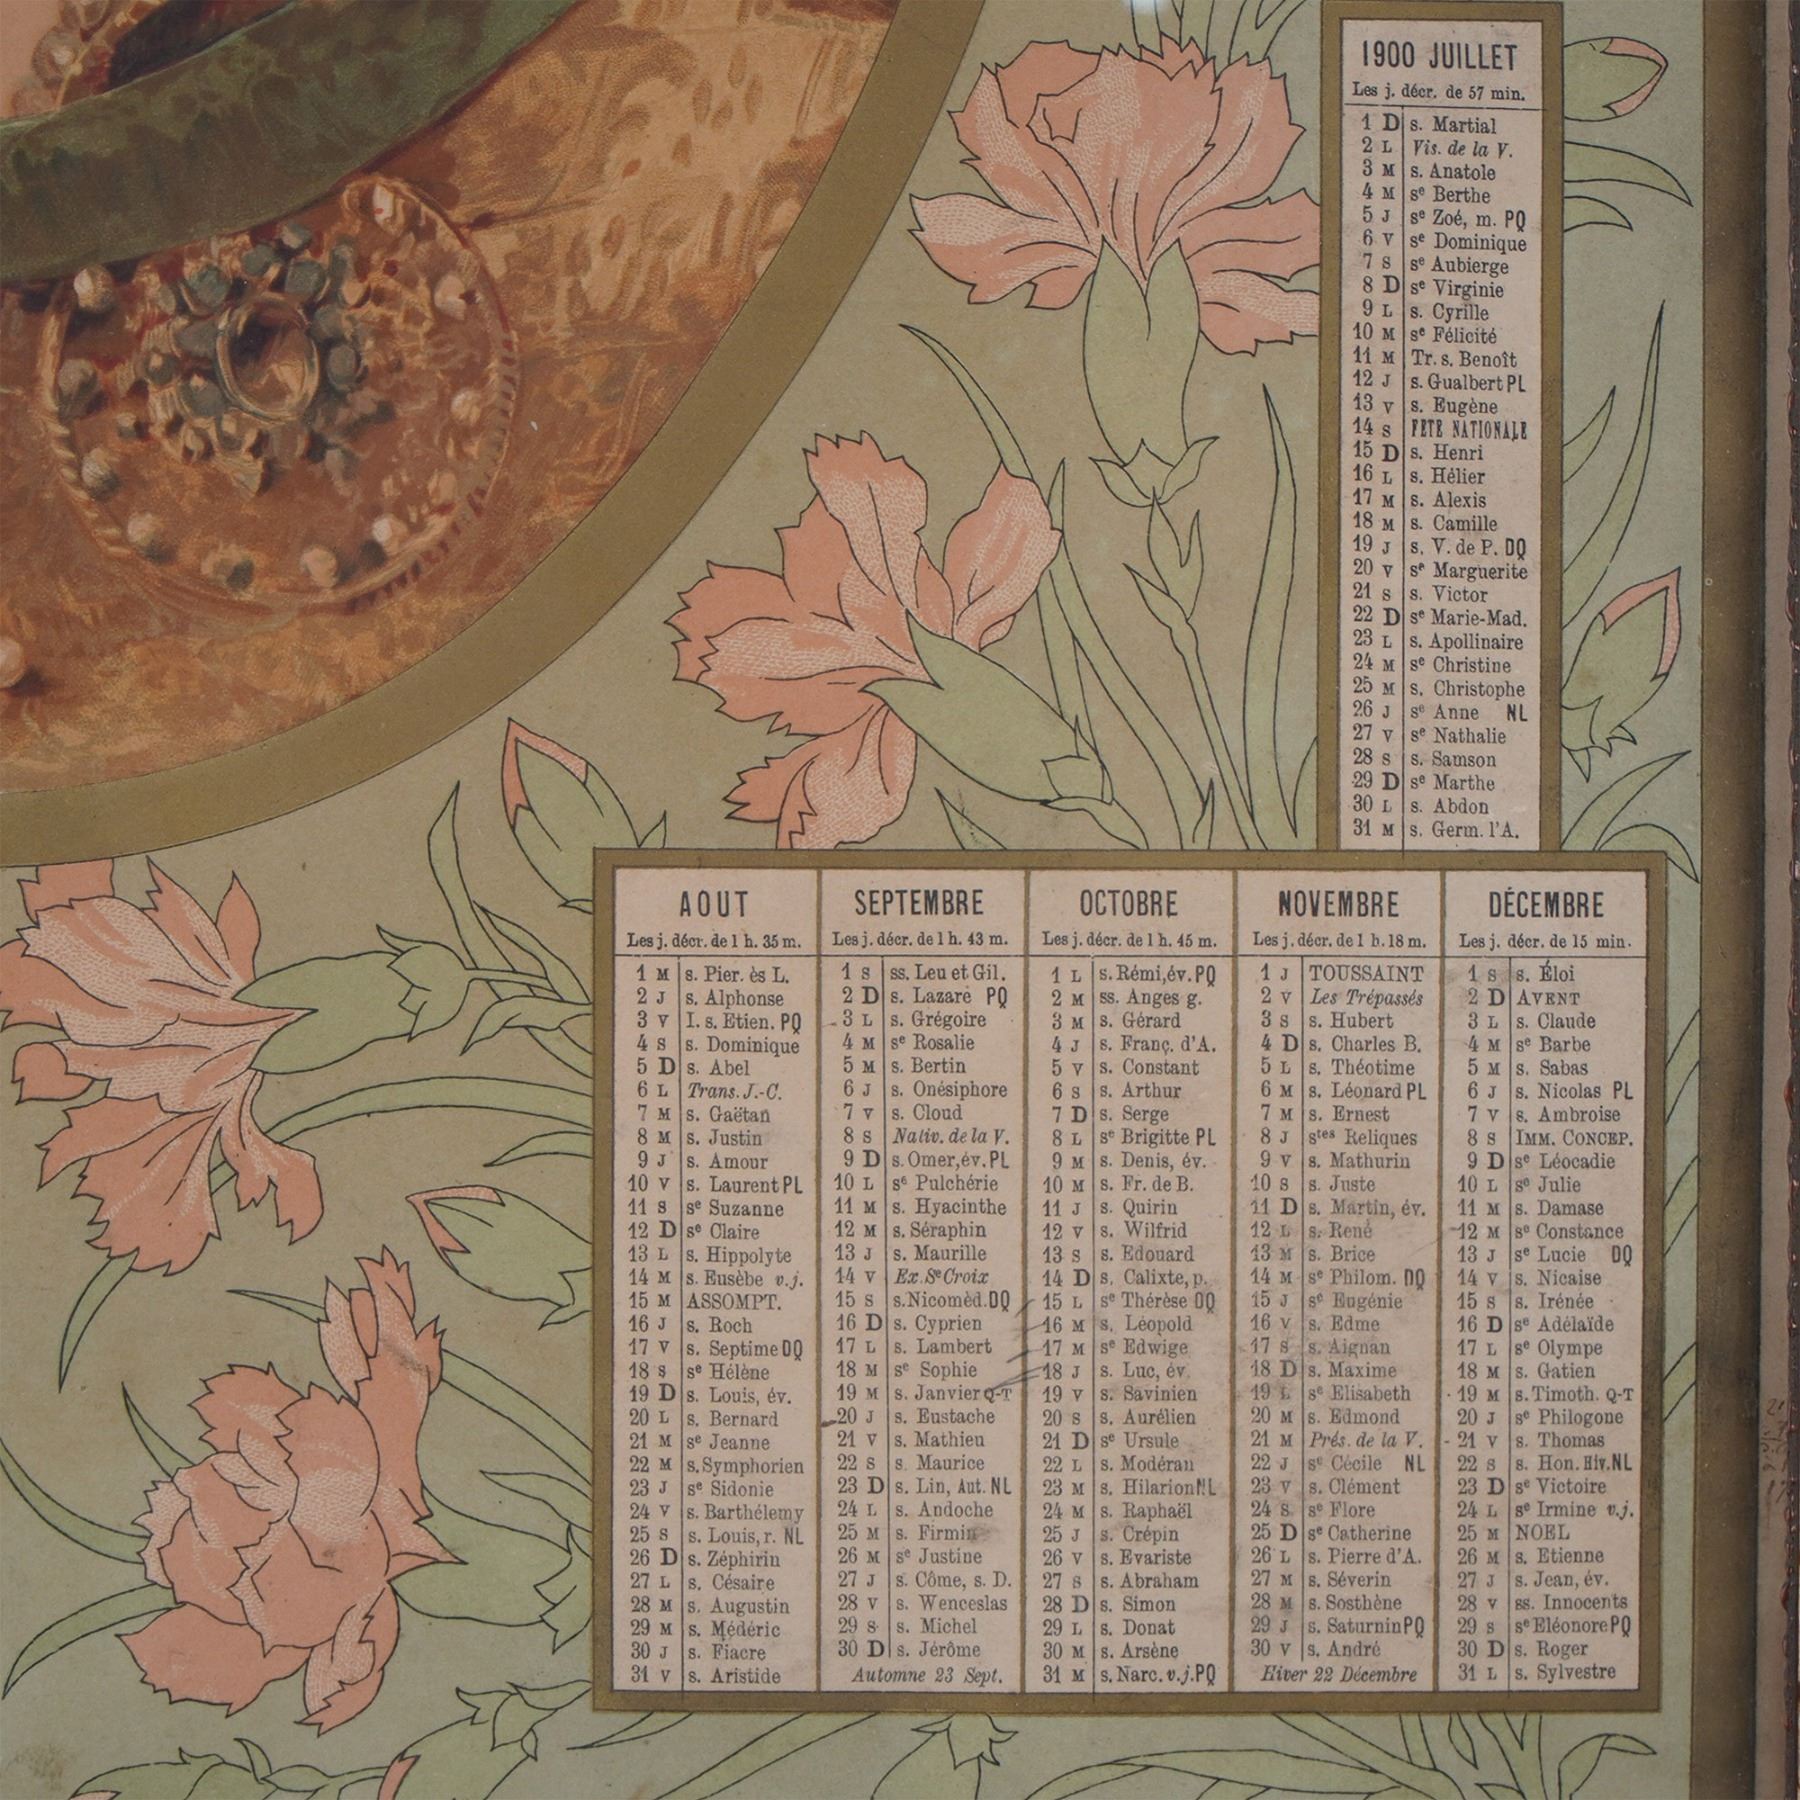 1900 JUILLET
Les j. décr. de 57 min.
1 D s. Martial
2 L Vis. de la V.
3 M s. Anatole
4 M se Berthe
5 J se Zoé, m. PQ
6 V se Dominique
7 S se Aubierge
8 D se Virginie
9 L s. Cyrille
10 M se Félicité
11 M Tr. s. Benoît
12 J s. Gualbert PL
13 V s. Eugène
14 S FETE NATIONALE
15 D s. Henri
16 L s. Hélier
17 M s. Alexis
18 M s. Camille
19 J s. V. de P. DQ
20 V se Marguerite
21 S s. Victor
22 D se Marie-Mad.
23 L s. Apollinaire
24 M se Christine
25 M s. Christophe
26 J se Anne NL
27 V se Nathalie
28 S s. Samson
29 D se Marthe
30 L s. Abdon
31 M s. Germ. l'A.
AOUT
Les j. décr. de 1 h. 35 m.
1 M s. Pier. ès L.
2 J s. Alphonse
3 V I. s. Etien. PQ
4 S s. Dominique
5 D s. Abel
6 L Trans. J.-C.
7 M s. Gaëtan
8 M s. Justin
9 J s. Amour
10 V s. Laurent PL
11 S se Suzanne
12 D se Claire
13 L s. Hippolyte
14 M s. Eusèbe v.j.
15 M ASSOMPT.
16 J s. Roch
17 V s. Septime DQ
18 S se Hélène
19 D s. Louis, év.
20 L s. Bernard
21 M se Jeanne
22 M s. Symphorien
23 J se Sidonie
24 V s. Barthélemy
25 S s. Louis, r. NL
26 D s. Zéphirin
27 L s. Césaire
28 M s. Augustin
29 M s. Médéric
30 J s. Fiacre
31 V s. Aristide
SEPTEMBRE
Les j. décr. de 1 h. 43 m.
1 S ss. Leu et Gil.
2 D s. Lazare PQ
3 L s. Grégoire
4 M se Rosalie
5 M s. Bertin
6 J s. Onésiphore
7 V s. Cloud
8 S Nativ. de la V.
9 D s. Omer, év. PL
10 L se Pulchérie
11 M s. Hyacinthe
12 M s. Séraphin
13 J s. Maurille
14 V Ex. Se Croix
15 S s. Nicomèd. DQ
16 D s. Cyprien
17 L s. Lambert
18 M se Sophie
19 M s. Janvier Q-T
20 J s. Eustache
21 V s. Mathieu
22 S s. Maurice
23 D s. Lin, Aut. NL
24 L s. Andoche
25 M s. Firmin
26 M se Justine
27 J s. Côme, s. D.
28 V s. Wenceslas
29 S s. Michel
30 D s. Jérôme
Automne 23 Sept.
OCTOBRE
Les j. décr. de 1 h. 45 m.
1 L s. Rémi, év. PQ
2 M ss. Anges g.
3 M s. Gérard
4 J s. Franç. d'A.
5 V s. Constant
6 S s. Arthur
7 D s. Serge
8 L se Brigitte PL
9 M s. Denis, év.
10 M s. Fr. de B.
11 J s. Quirin
12 V s. Wilfrid
13 S s. Edouard
14 D s. Calixte, p.
15 L se Thérèse DQ
16 M s. Léopold
17 M se Edwige
18 J s. Luc, év.
19 V s. Savinien
20 S s. Aurélien
21 D se Ursule
22 L s. Modéran
23 M s. Hilarion NL
24 M s. Raphaël
25 J s. Crépin
26 V s. Evariste
27 S s. Abraham
28 D s. Simon
29 L s. Donat
30 M s. Arsène
31 M s. Narc. v.j. PQ
NOVEMBRE
Les j. décr. de 1 h. 18 m.
1 J TOUSSAINT
2 V Les Trépassés
3 S s. Hubert
4 D s. Charles B.
5 L s. Théotime
6 M s. Léonard PL
7 M s. Ernest
8 J stes Reliques
9 V s. Mathurin
10 S s. Juste
11 D s. Martin, év.
12 L s. René
13 M s. Brice
14 M se Philom. DQ
15 J se Eugénie
16 V s. Edme
17 S s. Aignan
18 D s. Maxime
19 L se Elisabeth
20 M s. Edmond
21 M Prés. de la V.
22 J se Cécile NL
23 V s. Clément
24 S se Flore
25 D se Catherine
26 L s. Pierre d'A.
27 M s. Séverin
28 M s. Sosthène
29 J s. Saturnin PQ
30 V s. André
Hiver 22 Décembre
DÉCEMBRE
Les j. décr. de 15 min.
1 S s. Éloi
2 D AVENT
3 L s. Claude
4 M se Barbe
5 M s. Sabas
6 J s. Nicolas PL
7 V s. Ambroise
8 S IMM. CONCEP.
9 D se Léocadie
10 L se Julie
11 M s. Damase
12 M se Constance
13 J se Lucie DQ
14 V s. Nicaise
15 S s. Irénée
16 D se Adélaïde
17 L se Olympe
18 M s. Gatien
19 M s. Timoth. Q-T
20 J se Philogone
21 V s. Thomas
22 S s. Hon. Hiv. NL
23 D se Victoire
24 L se Irmine v.j.
25 M NOEL
26 M s. Etienne
27 J s. Jean, év.
28 V ss. Innocents
29 S se Eléonore PQ
30 D s. Roger
31 L s. Sylvestre